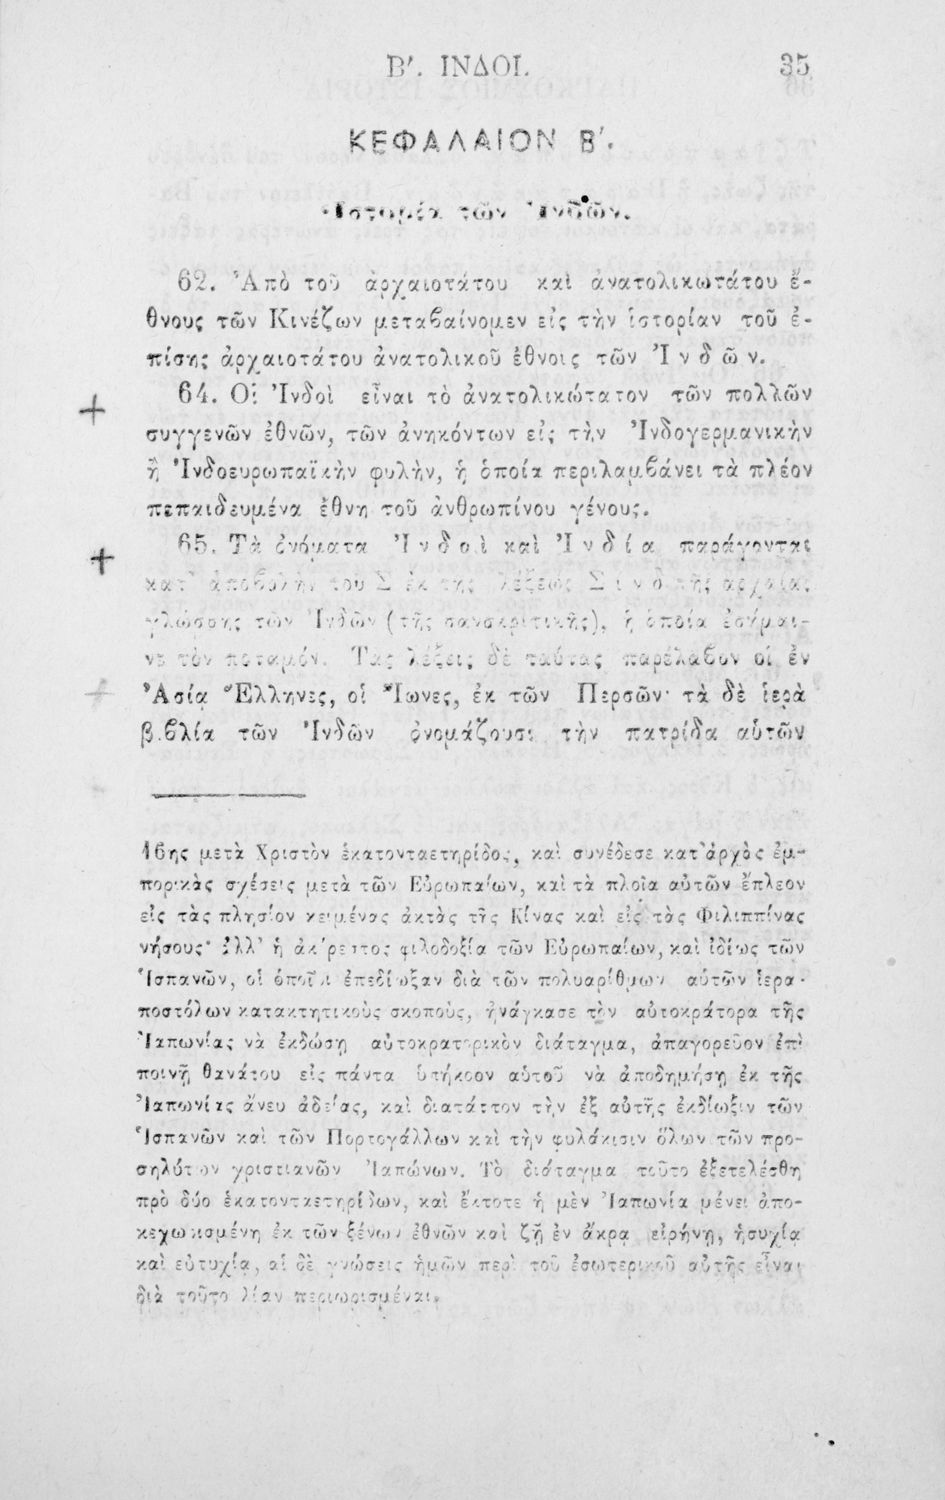 Β'. ΙΝΔΟΙ.
35
ΚΕΦΑΛΑΙΟΝ Β'.
Ἱστορία τῶν Ἰνδῶν.
62. Ἀπὸ τοῦ ἀρχαιοτάτου καὶ ἀνατολικωτάτου ἔ-
θνους τῶν Κινέζων μεταβαίνομεν εἰς τὴν ἱστορίαν τοῦ ἐ-
πίσης ἀρχαιοτάτου ἀνατολικοῦ ἔθνοις τῶν Ἰνδῶν.
64. Οἱ Ἰνδοὶ εἶναι τὸ ἀνατολικώτατον τῶν πολλῶν
συγγενῶν ἐθνῶν, τῶν ἀνηκόντων εἰς τὴν Ἰνδογερμανικὴν
ἢ Ἰνδοευρωπαϊκὴν φυλὴν, ἡ ὁποία περιλαμβάνει τὰ πλέον
πεπαιδευμένα ἔθνη τοῦ ἀνθρωπίνου γένους.
65. Τὰ ὀνόματα Ἰνδοὶ καὶ Ἰνδία παράγονται
κατ' ἀποβολὴν τοῦ Σ ἐκ τῆς λέξεως Σινδ τῆς ἀρχαίας
γλώσσης τῶν Ἰνδῶν (τῆς σανσκριτικῆς), ἡ ὁποία ἐσήμαι-
νε τὸν ποταμόν. Τὰς λέξεις δὲ ταύτας παρέλαβον οἱ ἐν
Ἀσίᾳ Ἕλληνες, οἱ Ἴωνες, ἐκ τῶν Περσῶν· τὰ δὲ ἱερὰ
βιβλία τῶν Ἰνδῶν ὀνομάζουσι τὴν πατρίδα αὑτῶν
16ης μετὰ Χριστὸν ἑκατονταετηρίδος, καὶ συνέδεσε κατ' ἀρχὰς ἐμ-
πορικὰς σχέσεις μετὰ τῶν Εὐρωπαίων, καὶ τὰ πλοῖα αὐτῶν ἔπλεον
εἰς τὰς πλησίον κειμένας ἀκτὰς τῆς Κίνας καὶ εἰς τὰς Φιλιππίνας
νήσους· ἀλλ' ἡ ἀκόρεστος φιλοδοξία τῶν Εὐρωπαίων, καὶ ἰδίως τῶν
Ἱσπανῶν, οἱ ὁποῖοι ἐπεδίωξαν διὰ τῶν πολυαρίθμων αὐτῶν ἱερα-
ποστόλων κατακτητικοὺς σκοποὺς, ἠνάγκασε τὸν αὐτοκράτορα τῆς
Ἰαπωνίας νὰ ἐκδώσῃ αὐτοκρατορικὸν διάταγμα, ἀπαγορεῦον ἐπὶ
ποινῇ θανάτου εἰς πάντα ὑπήκοον αὑτοῦ νὰ ἀποδημήσῃ ἐκ τῆς
Ἰαπωνίας ἄνευ ἀδείας, καὶ διατάττον τὴν ἐξ αὐτῆς ἐκδίωξιν τῶν
Ἱσπανῶν καὶ τῶν Πορτογάλλων καὶ τὴν φυλάκισιν ὅλων τῶν προ-
σηλύτων χριστιανῶν Ἰαπώνων. Τὸ διάταγμα τοῦτο ἐξετελέσθη
πρὸ δύο ἑκατονταετηρίδων, καὶ ἔκτοτε ἡ μὲν Ἰαπωνία μένει ἀπο-
κεχωρισμένη ἐκ τῶν ξένων ἐθνῶν καὶ ζῇ ἐν ἄκρᾳ εἰρήνῃ, ἡσυχίᾳ
καὶ εὐτυχίᾳ, αἱ δὲ γνώσεις ἡμῶν περὶ τοῦ ἐσωτερικοῦ αὐτῆς εἶναι
διὰ τοῦτο λίαν περιωρισμέναι.